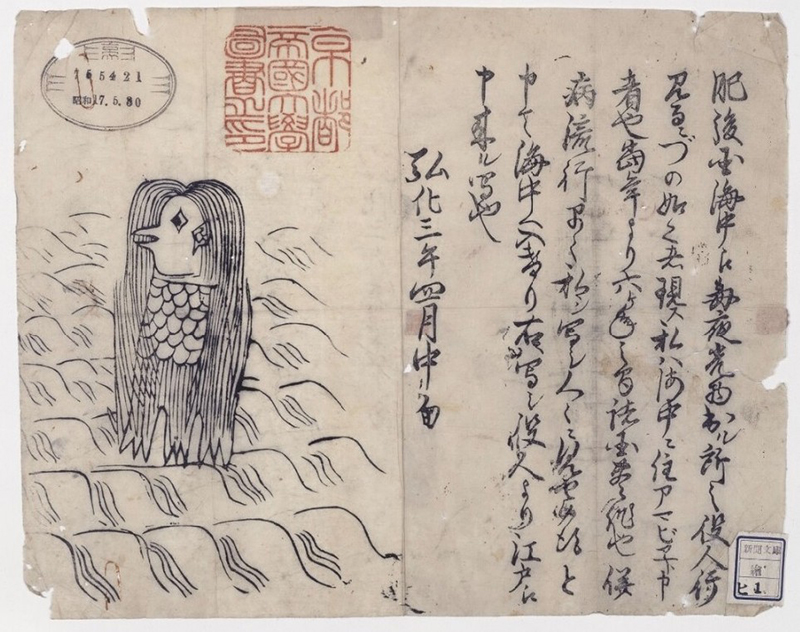 肥後国海中え毎夜光物出ル所之役人行
見るニづの如く者現ス私ハ海中ニ住アマビヱト申
者也當年より六ヶ年之間諸国豊作也併
病流行早々私シ写シ人々ニ見セ候得と
申て海中へ入けり右写シ役人より江戸え
申来ル写也
弘化三年四月中旬
京都
帝國大學
圖書之印
165421
昭和17.5.30
新聞文庫
繪
ヒ 1